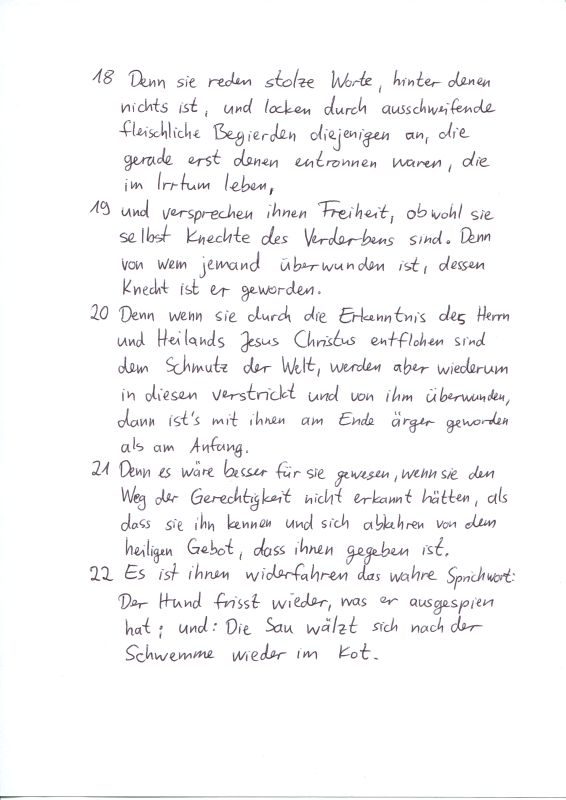 18 Denn sie reden stolze Worte, hinter denen
nichts ist, und locken durch ausschweifende
fleischliche Begierden diejenigen an, die
gerade erst denen entronnen waren, die
im Irrtum leben,
19 und versprechen ihnen Freiheit, obwohl sie
selbst Knechte des Verderbens sind. Denn
von wem jemand überwunden ist, dessen
Knecht ist er geworden.
20 Denn wenn sie durch die Erkenntnis des Herrn
und Heilands Jesus Christus entflohen sind
dem Schmutz der Welt, werden aber wiederum
in diesen verstrickt und von ihm überwunden,
dann ist's mit ihnen am Ende ärger geworden
als am Anfang.
21 Denn es wäre besser für sie gewesen, wenn sie den
Weg der Gerechtigkeit nicht erkannt hätten, als
dass sie ihn kennen und sich abkehren von dem
heiligen Gebot, dass ihnen gegeben ist.
22 Es ist ihnen widerfahren das wahre Sprichwort:
Der Hund frisst wieder, was er ausgespien
hat; und: Die Sau wälzt sich nach der
Schwemme wieder im Kot.